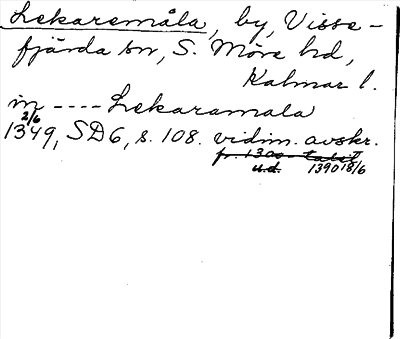 Lekaremåla, by, Visse-
fjärda sn, S. Möre hd,
Kalmar l.
in ---- Lekaramala
2/6
1349, SD6, s. 108. vidim. avskr.
fr. 1300-talet
u.d. 1390 18/6